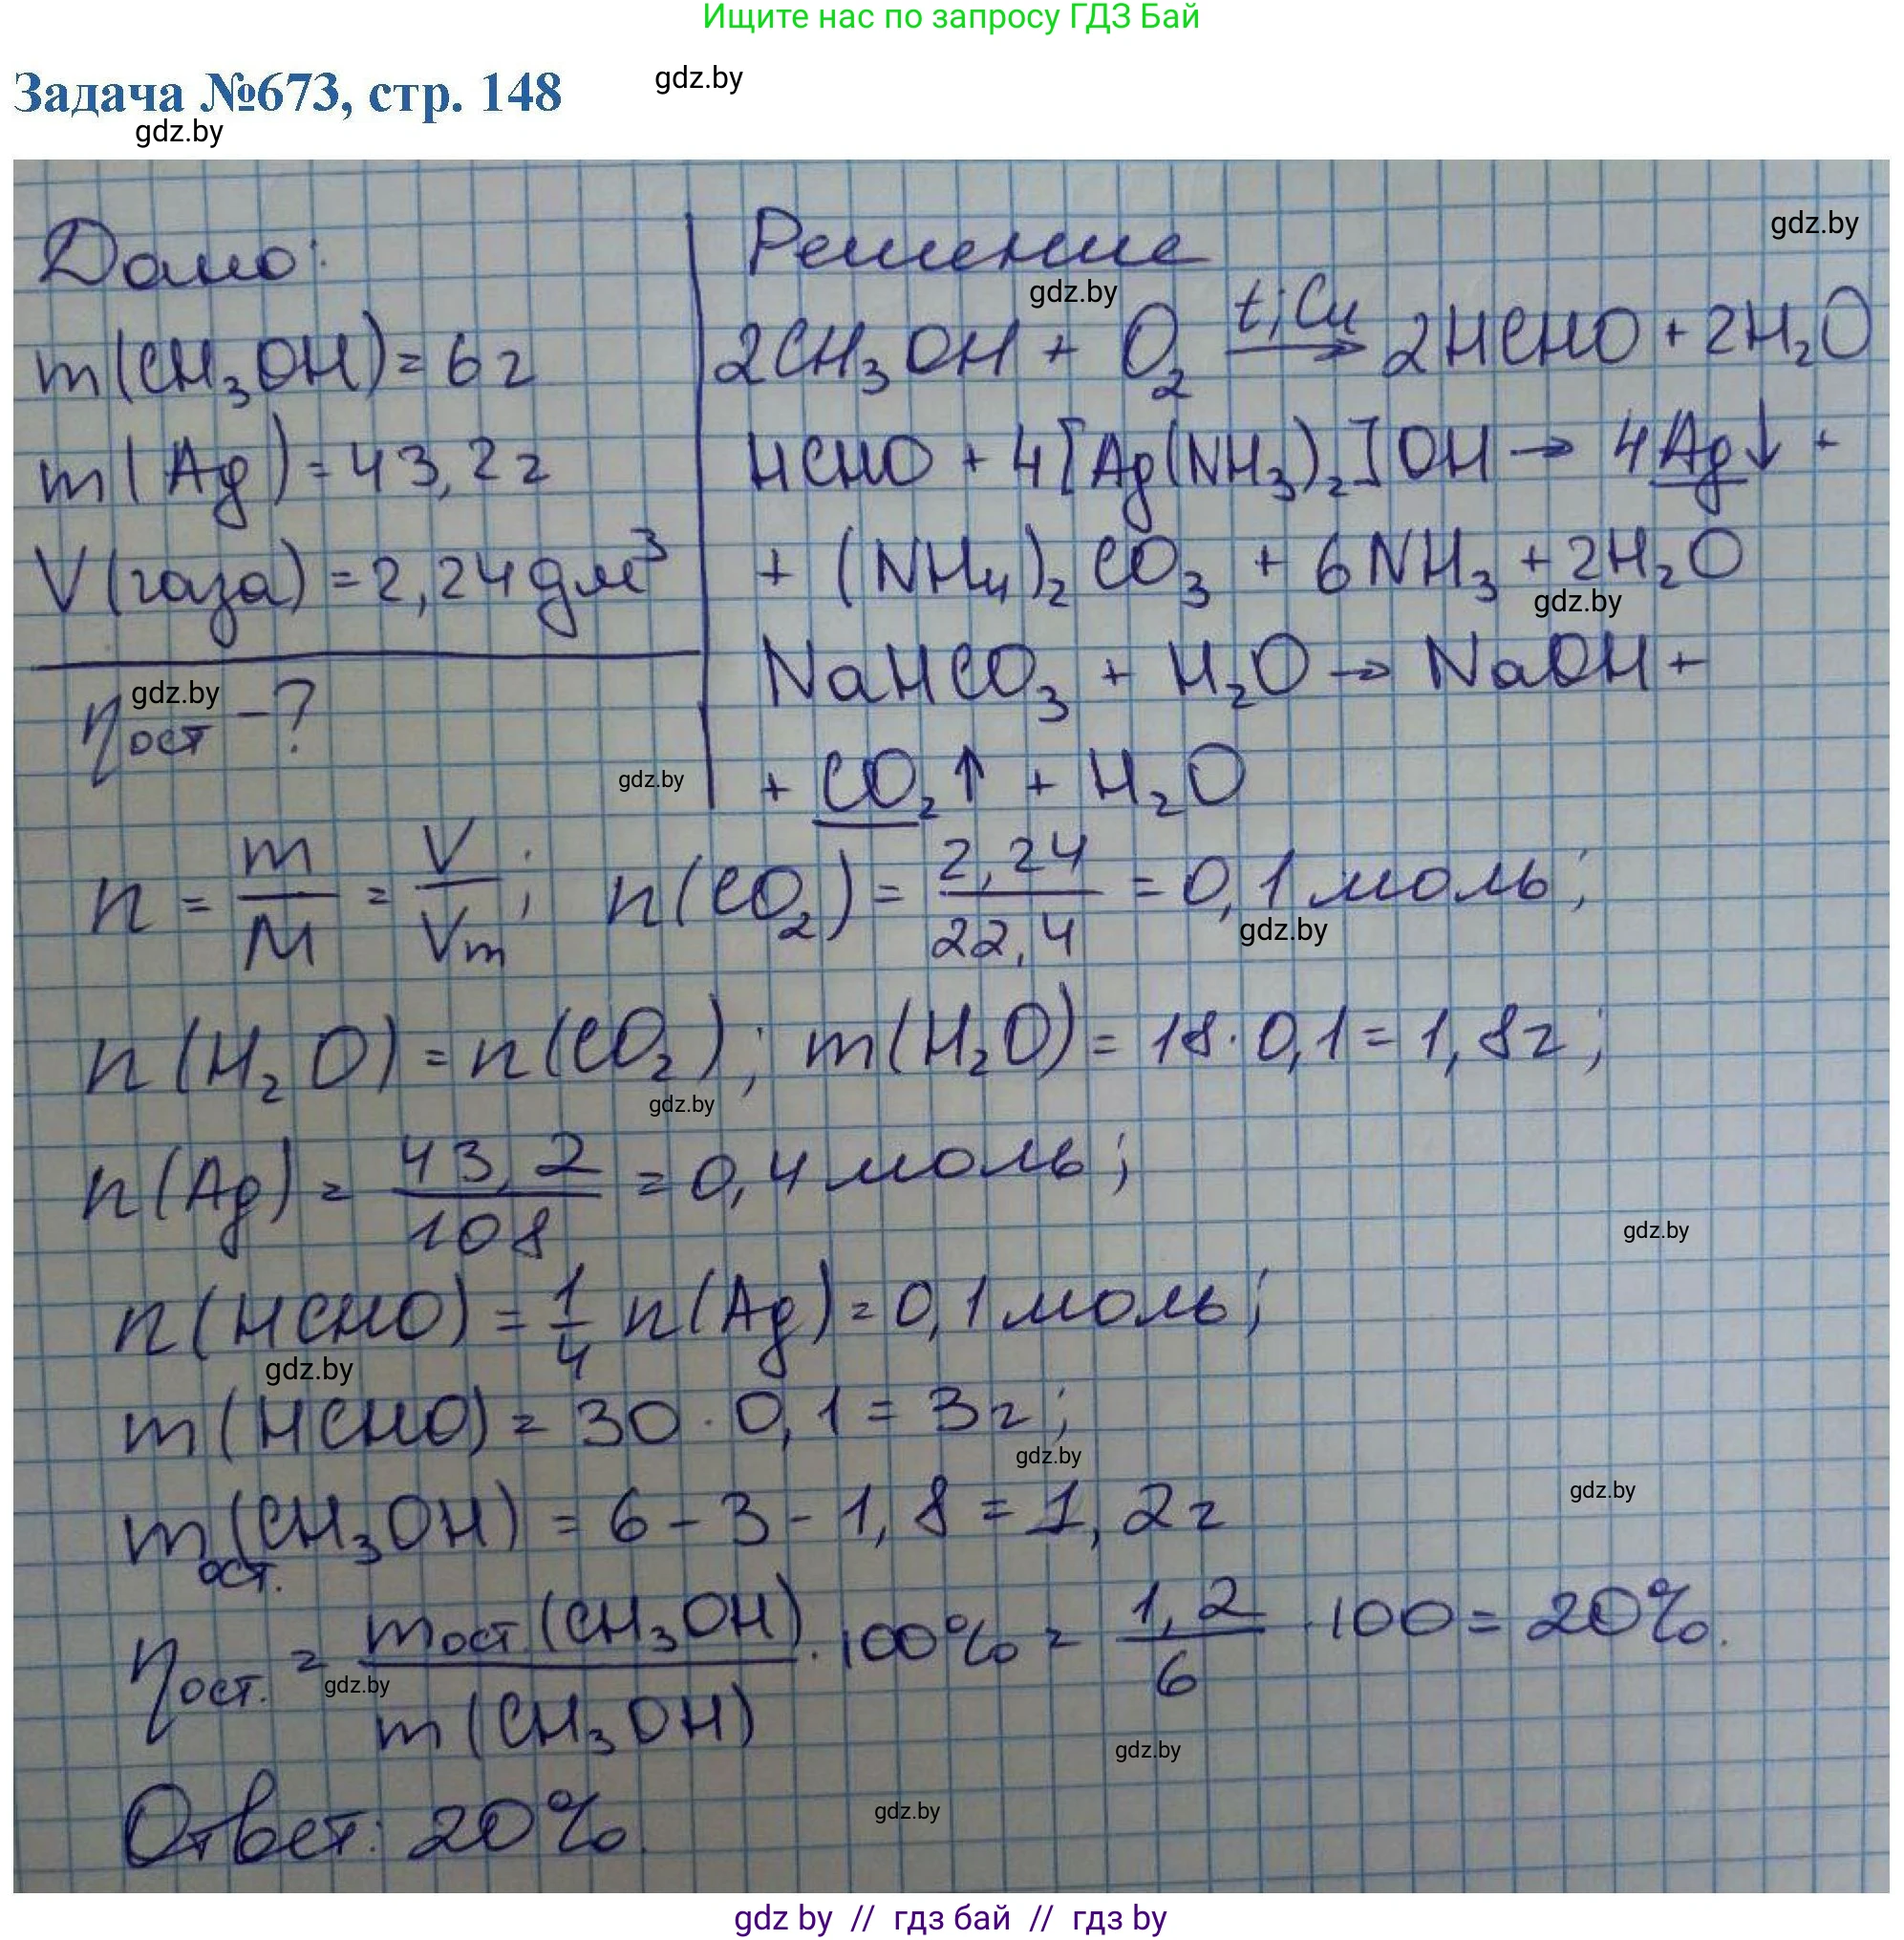 Ищите нас по запросу ГДЗ Бай
Задача №673, стр. 148
gdz.by
gdz.by
Дано:
m(CH₃OH) = 6 г
m(Ag) = 43,2 г
V(газа) = 2,24 дм³
ηост - ?
gdz.by
Решение
gdz.by
gdz.by
2CH₃OH + O₂ t; Cu → 2HCHO + 2H₂O
HCHO + 4[Ag(NH₃)₂]OH → 4Ag↓ +
+ (NH₄)₂CO₃ + 6NH₃ + 2H₂O
gdz.by
NaHCO₃ + H₂O → NaOH +
+ CO₂↑ + H₂O
gdz.by
n = m/M = V/Vm; n(CO₂) = 2,24/22,4 = 0,1 моль;
gdz.by
n(H₂O) = n(CO₂); m(H₂O) = 18·0,1 = 1,8 г;
gdz.by
n(Ag) = 43,2/108 = 0,4 моль;
gdz.by
n(HCHO) = 1/4 n(Ag) = 0,1 моль;
gdz.by
m(HCHO) = 30·0,1 = 3 г;
gdz.by
gdz.by
mост.(CH₃OH) = 6 - 3 - 1,8 = 1,2 г
ηост. = mост.(CH₃OH)/m(CH₃OH) · 100% = 1,2/6 · 100 = 20%.
gdz.by
gdz.by
Ответ: 20%.
gdz.by
gdz by // гдз бай // гдз by